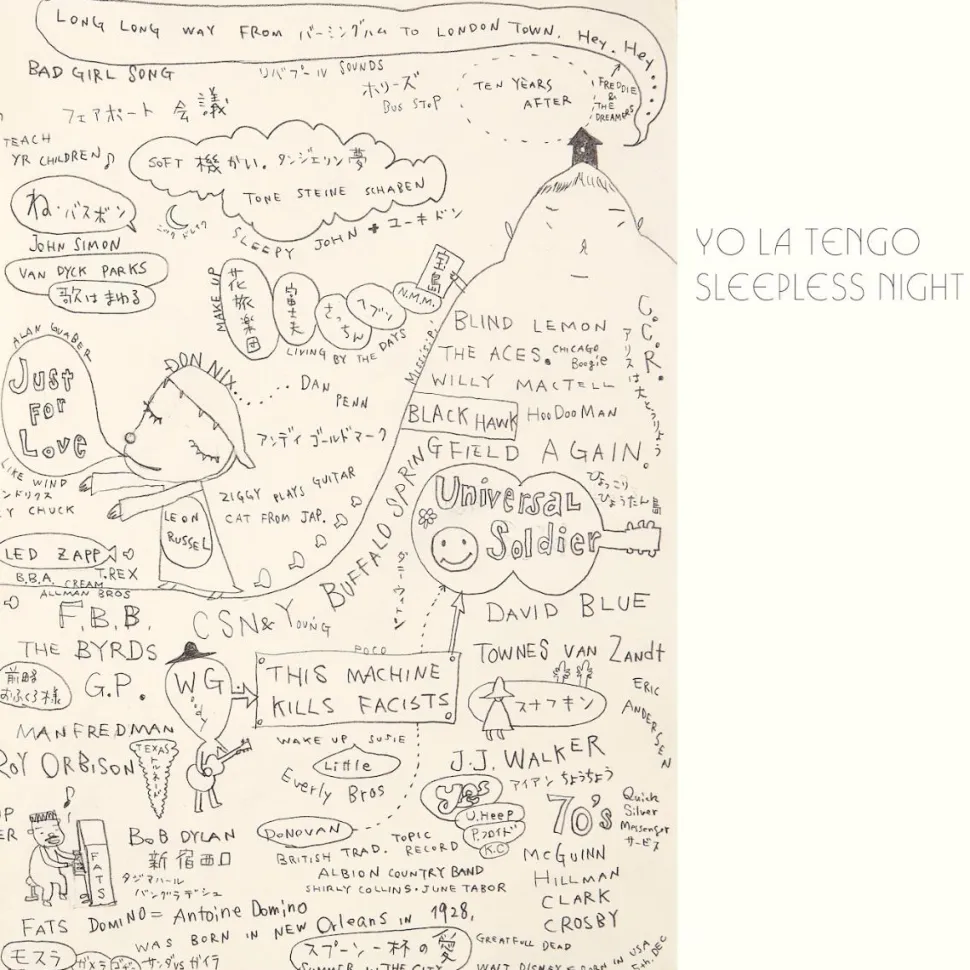 LONG LONG WAY FROM バーミングハム TO LONDON TOWN. HEY. HEY....
BAD GIRL SONG
リバプール SOUNDS
ホリーズ
BUS STOP
TEN YEARS
AFTER
FREDDIE
&
THE
DREAMERS
フェアポート 会議
TEACH
YR CHILDREN
SOFT 機かい. タンジェリン夢
TONE STEINE SCHABEN
ね・バスボン
ニック ドレイク
SLEEPY JOHN + ユーキドン
JOHN SIMON
VAN DYCK PARKS
歌はまわる
YO LA TENGO
SLEEPLESS NIGHT
MAKE UP
花旅楽団
富士夫
さっちん
ヘブン
N.M.M.
宝島
LIVING BY THE DAYS
MISSISIPI
BLIND LEMON
THE ACES.
CHICAGO
Boogie
WILLY MACTELL
BLACK HAWK
HOODOOMAN
C.C.R.
アリスは大とうりょう
ALAN GUABER
JUST
FOR
LOVE
DON NIX......
DAN
PENN
アンディ ゴールドマーク
LIKE WIND
ンドリクス
Y CHUCK
ZIGGY PLAYS GUITAR
CAT FROM JAP.
LEON
RUSSEL
BUFFALO SPRINGFIELD AGAIN.
UNIVERSAL
SOLDIER
ひょっこり
ひょうたん島
LED ZAPP
B.B.A.
CREAM
T.REX
ALLMAN BROS
F.B.B.
CSN& YOUNG
ダニーウィットン
DAVID BLUE
THE BYRDS
G.P.
前略
おふくろ様
WG
woody
POCO
THIS MACHINE
KILLS FACISTS
TOWNES VAN ZANDT
スナフキン
ERIC
ANDERSEN
MANFREDMAN
ROY ORBISON
TEXAS
トルネード
WAKE UP SUSIE
Little
Everly Bros
J.J. WALKER
アイアン ちょうちょう
yes
U.HEEP
P.フロイド
K.C
70's
Quick
Silver
Messenger
サービス
UP
ER
FATS
BOB DYLAN
新宿西口
タジマハール
バングラデシュ
DONOVAN
TOPIC
RECORD
BRITISH TRAD.
ALBION COUNTRY BAND
SHIRLY COLLINS・JUNE TABOR
MCGUINN
HILLMAN
CLARK
CROSBY
FATS DOMINO = Antoine Domino
WAS BORN IN NEW Orleans IN 1928,
モスラ
ガメラ
サンダ VS ガイラ
スプーン一杯の愛
SUMMER IN THE CITY
GREATFULL DEAD
WALT DISNEY
BORN IN USA
5th. DEC